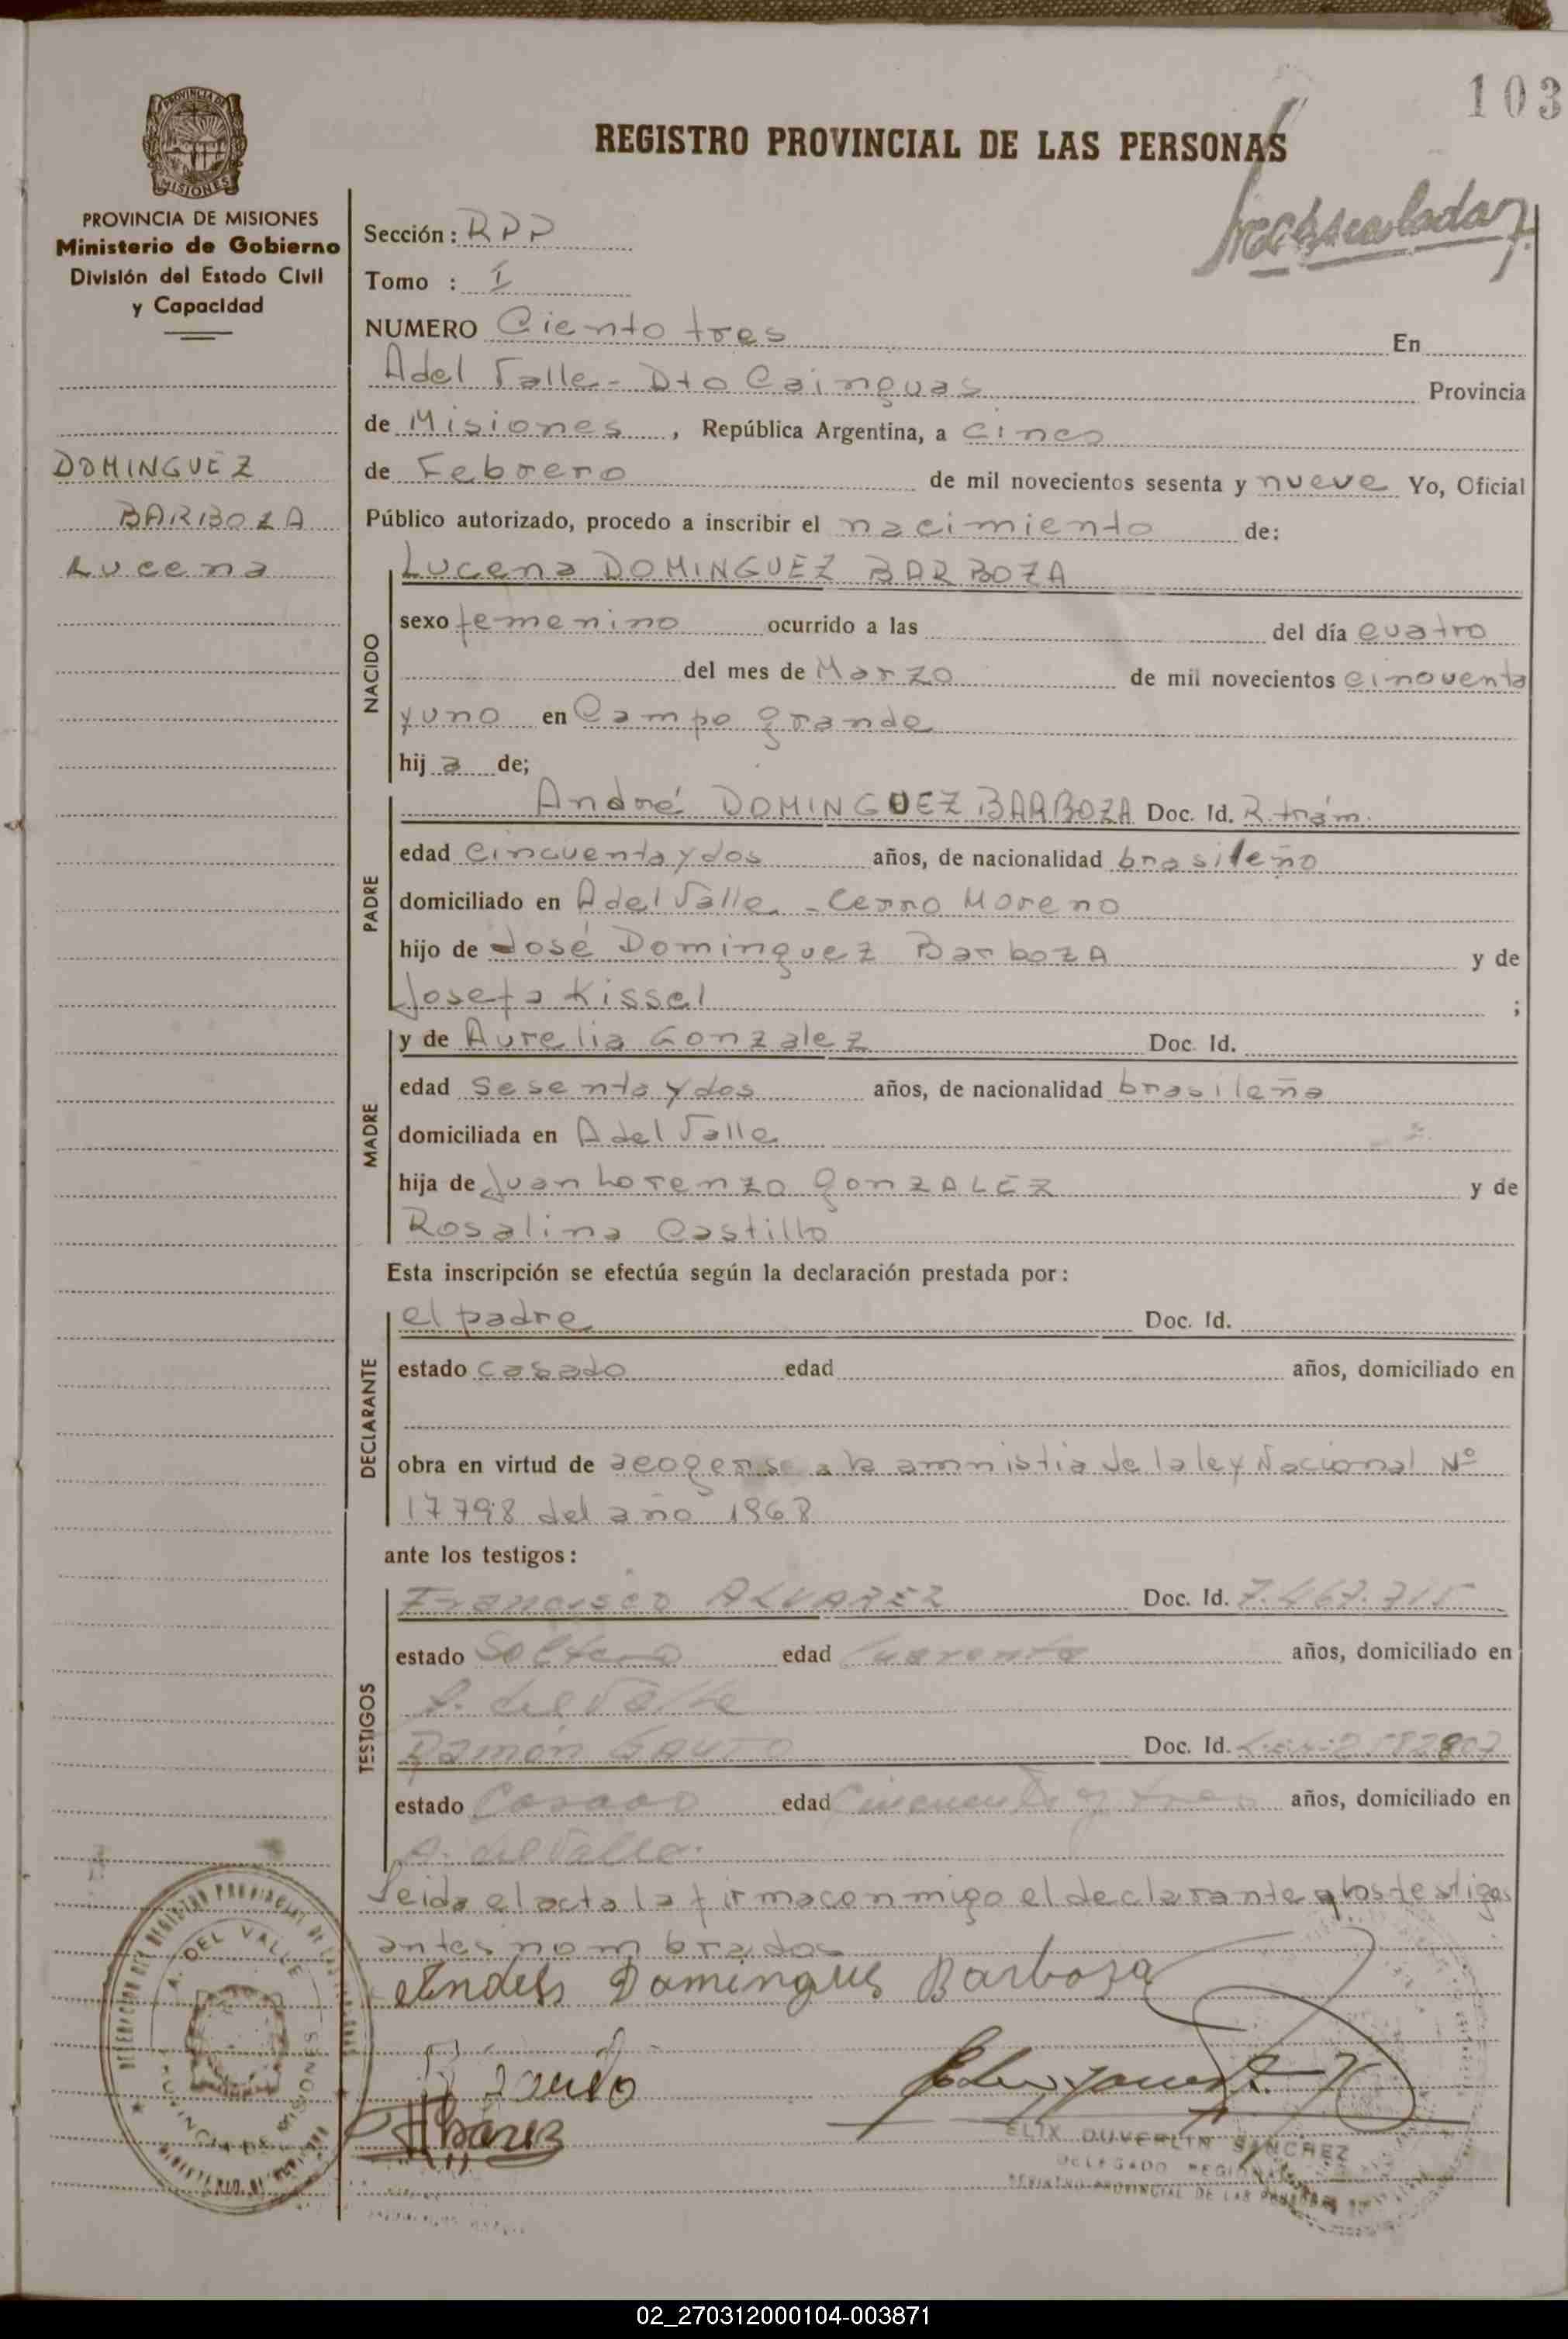 103
PROVINCIA DE
MISIONES
REGISTRO PROVINCIAL DE LAS PERSONAS
PROVINCIA DE MISIONES
Ministerio de Gobierno
División del Estado Civil
y Capacidad
Sección: RPP
Tomo : I
NUMERO Ciento tres En
Adel Valle - Dto Cainguas Provincia
de Misiones, República Argentina, a cinco
DOMINGUEZ
BARBOZA
Lucena
de Febrero de mil novecientos sesenta y nueve Yo, Oficial
Público autorizado, procedo a inscribir el nacimiento de:
NACIDO
Lucena DOMINGUEZ BARBOZA
sexo femenino ocurrido a las del día cuatro
del mes de Marzo de mil novecientos cincuenta
y uno en Campo grande
hij a de;
PADRE
André DOMINGUEZ BARBOZA Doc. Id. R. trám.
edad cincuenta y dos años, de nacionalidad brasileño
domiciliado en Adel Valle - Cerro Moreno
hijo de José Dominguez BarbozA y de
Josefa Kissel ;
MADRE
y de Aurelia Gonzalez Doc. Id.
edad Sesenta y dos años, de nacionalidad brasileña
domiciliada en Adel Valle
hija de Juan Lorenzo gonZALEZ y de
Rosalina Castillo
Esta inscripción se efectúa según la declaración prestada por:
DECLARANTE
el padre Doc. Id.
estado casado edad años, domiciliado en
obra en virtud de acogerse a la amnistia de la ley Nacional Nº
17798 del año 1968
ante los testigos:
TESTIGOS
Francisco ALVAREZ Doc. Id. 7.467.715
estado Soltero edad Cuarenta años, domiciliado en
A. del Valle
Ramón GAUTO Doc. Id.
estado Casado edad Cincuenta y tres años, domiciliado en
A. del Valle.
Leida el acta la firma conmigo el declarante y los testigos
antes nombrados
Andels Domingues Barboza
A. DEL VALLE
PROVINCIA DE MISIONES
ELIX DUVERLIN SANCHEZ
DELEGADO REGIONAL
REGISTRO PROVINCIAL DE LAS PERSONAS
02_270312000104-003871